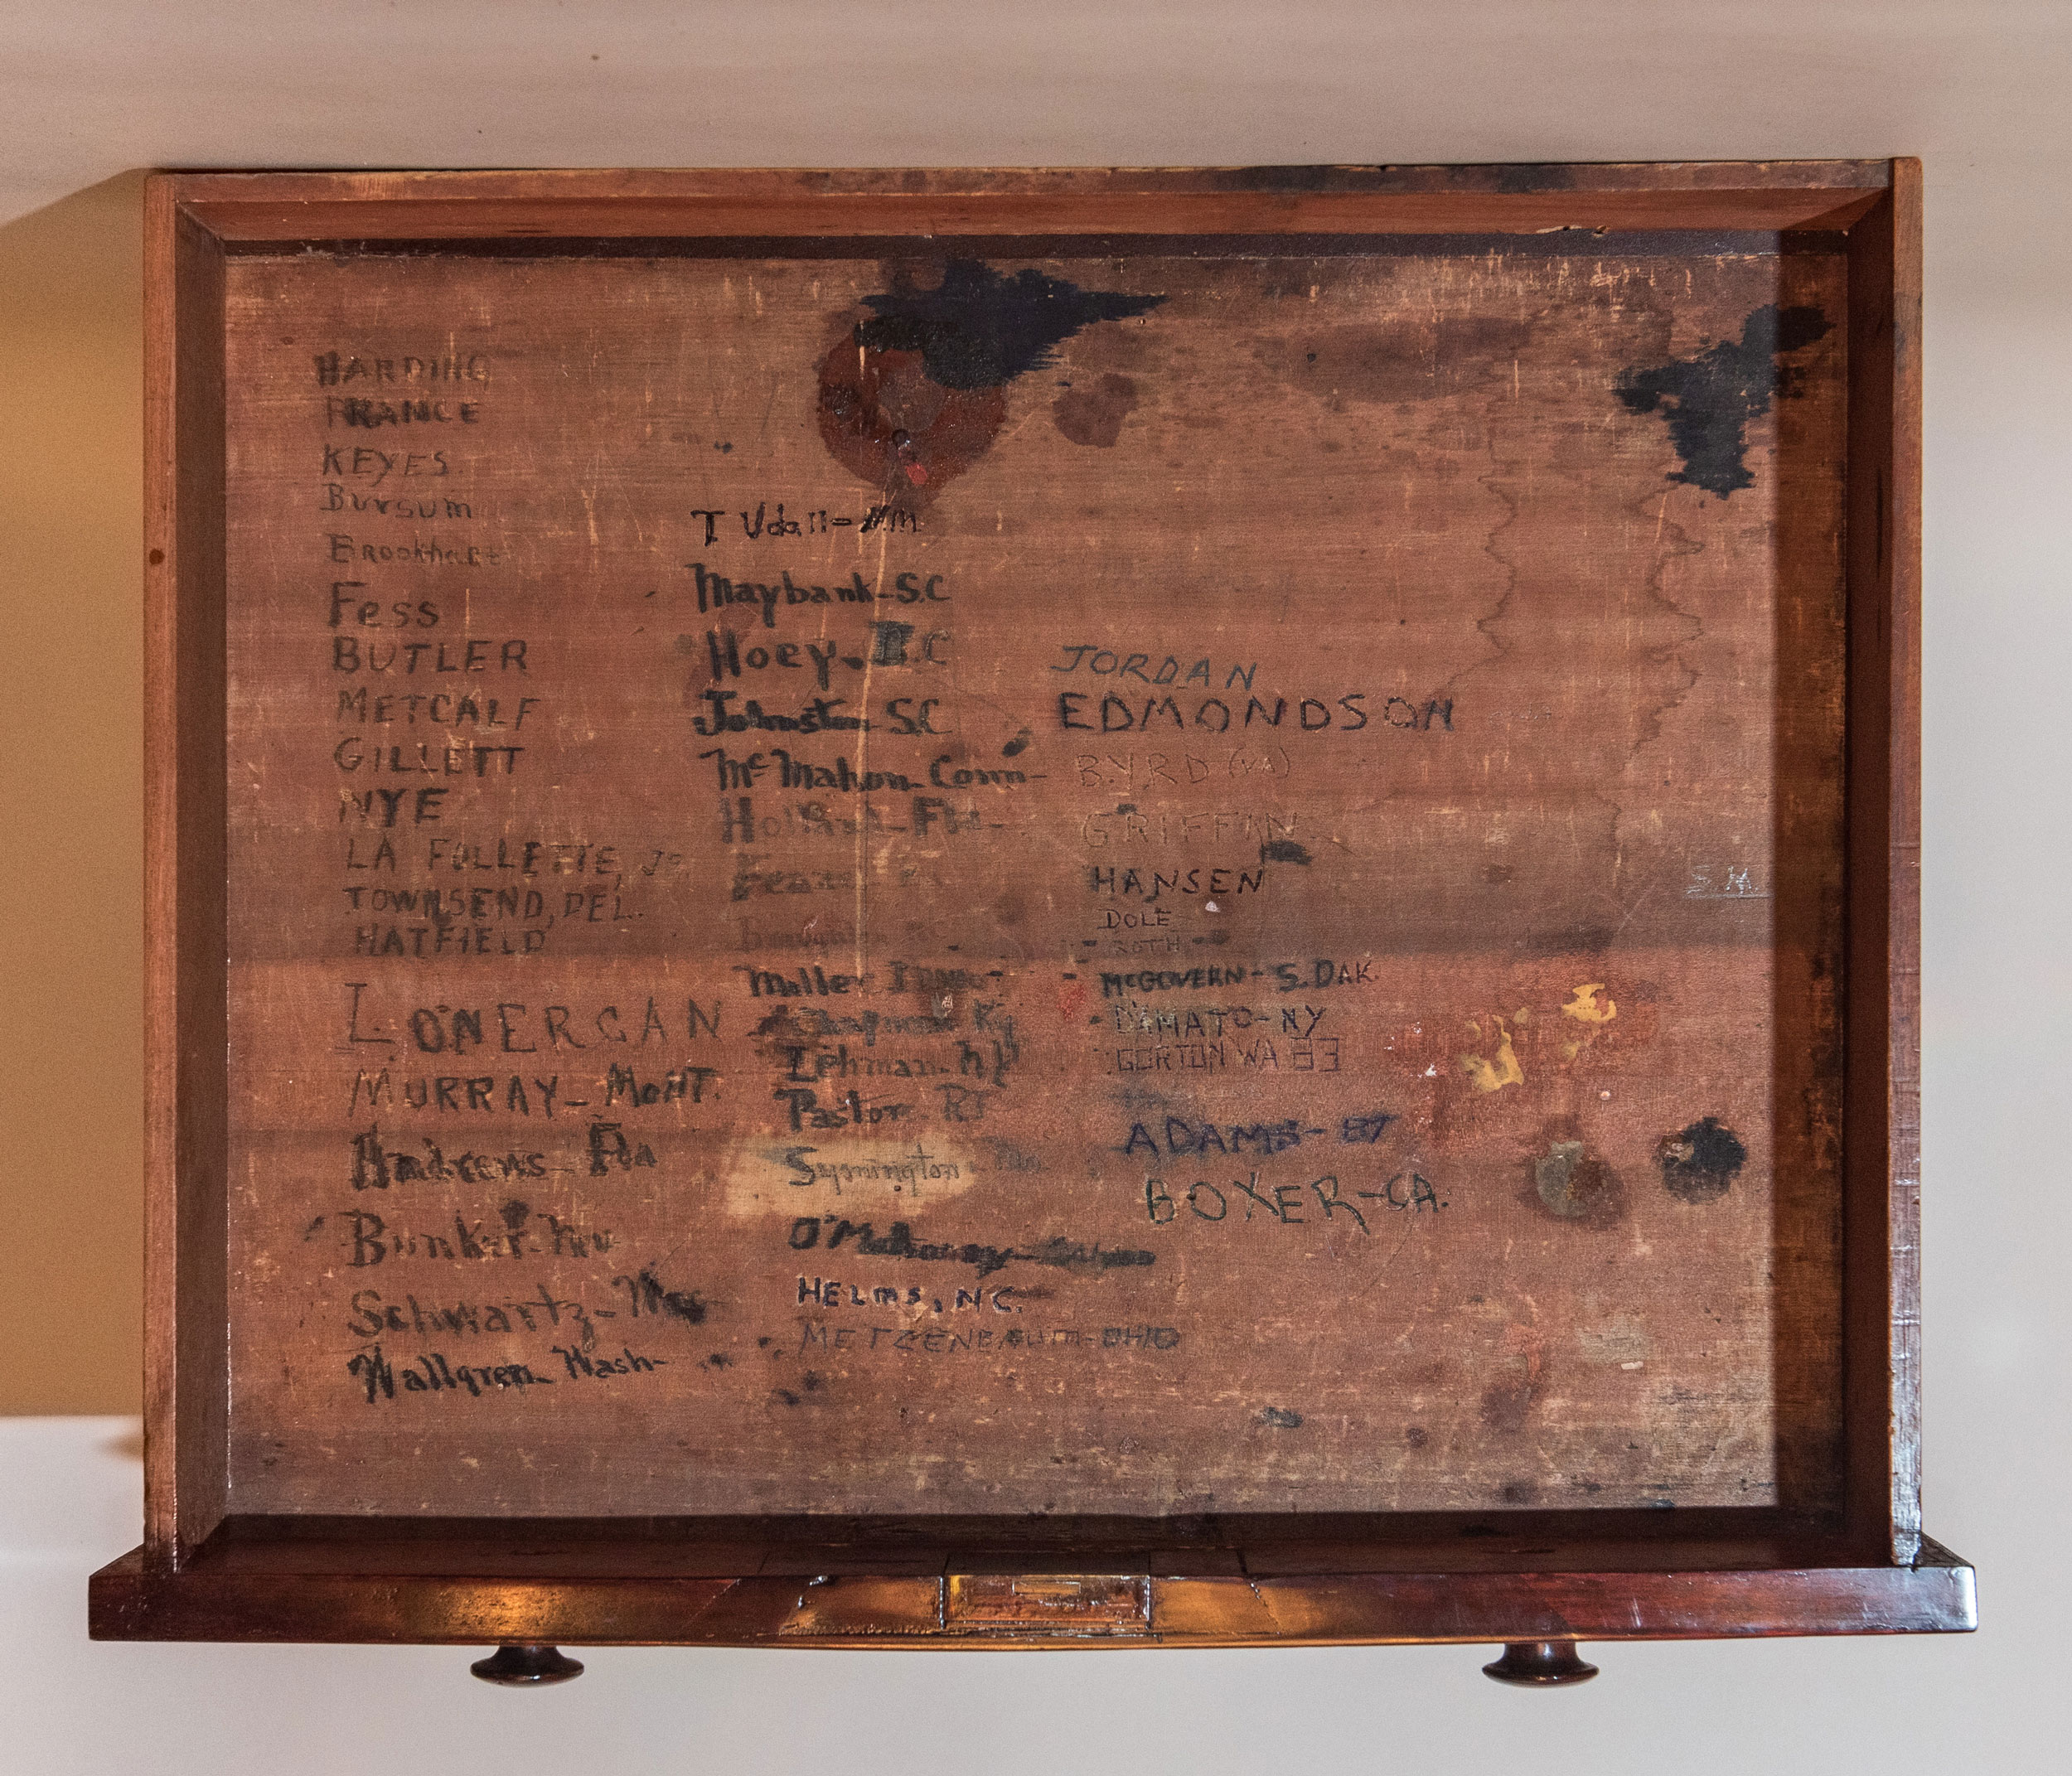 HARDING
FRANCE
KEYES
Bursum
Brookhart
Fess
BUTLER
METCALF
GILLETT
NYE
LA FOLLETTE, Jr.
TOWNSEND, DEL.
HATFIELD
LONERGAN
MURRAY-MONT.
Andrews-Fla
Bunker-Nev
Schwartz-
Wallgren-Wash-
T Udall-N.M.
Maybank-S.C
Hoey-N.C
Johnston-S.C
McMahon-Conn-
Holland-Fla-
Miller
Chapman Ky
Lehman-N.Y
Pastore RI
Symington-Mo
O'Mahoney-
HELMS, NC.
METZENBAUM-OHIO
JORDAN
EDMONDSON
BYRD (VA)
GRIFFIN
HANSEN
DOLE
ROTH
McGOVERN-S.DAK
D'AMATO-NY
GORTON WA 83
ADAMS-87
BOXER-CA.
S.H.